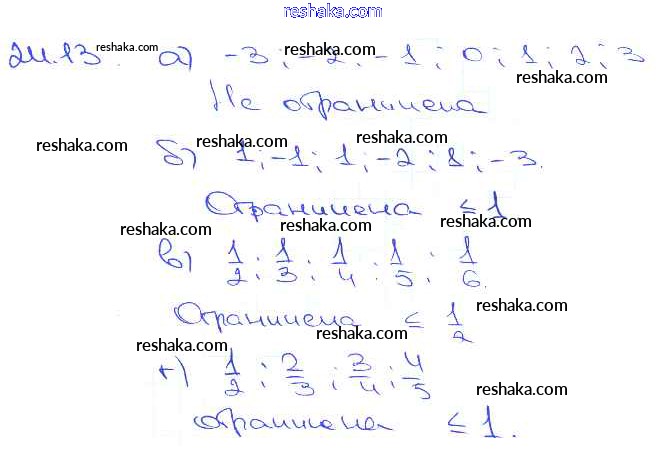 reshaka.com
24.13. reshaka.com а) -3; -2, -1; 0; 1; 2; 3 reshaka.com
reshaka.com
Не ограничена
reshaka.com reshaka.com reshaka.com
б) 1; -1; 1; -2; 1; -3.
Ограничена ≤ 1 reshaka.com
reshaka.com reshaka.com
в) 1/2; 1/3; 1/4; 1/5; 1/6. reshaka.com
Ограничена ≤ 1/2 reshaka.com
reshaka.com
г) 1/2; 2/3; 3/4; 4/5 reshaka.com
ограничена ≤ 1.